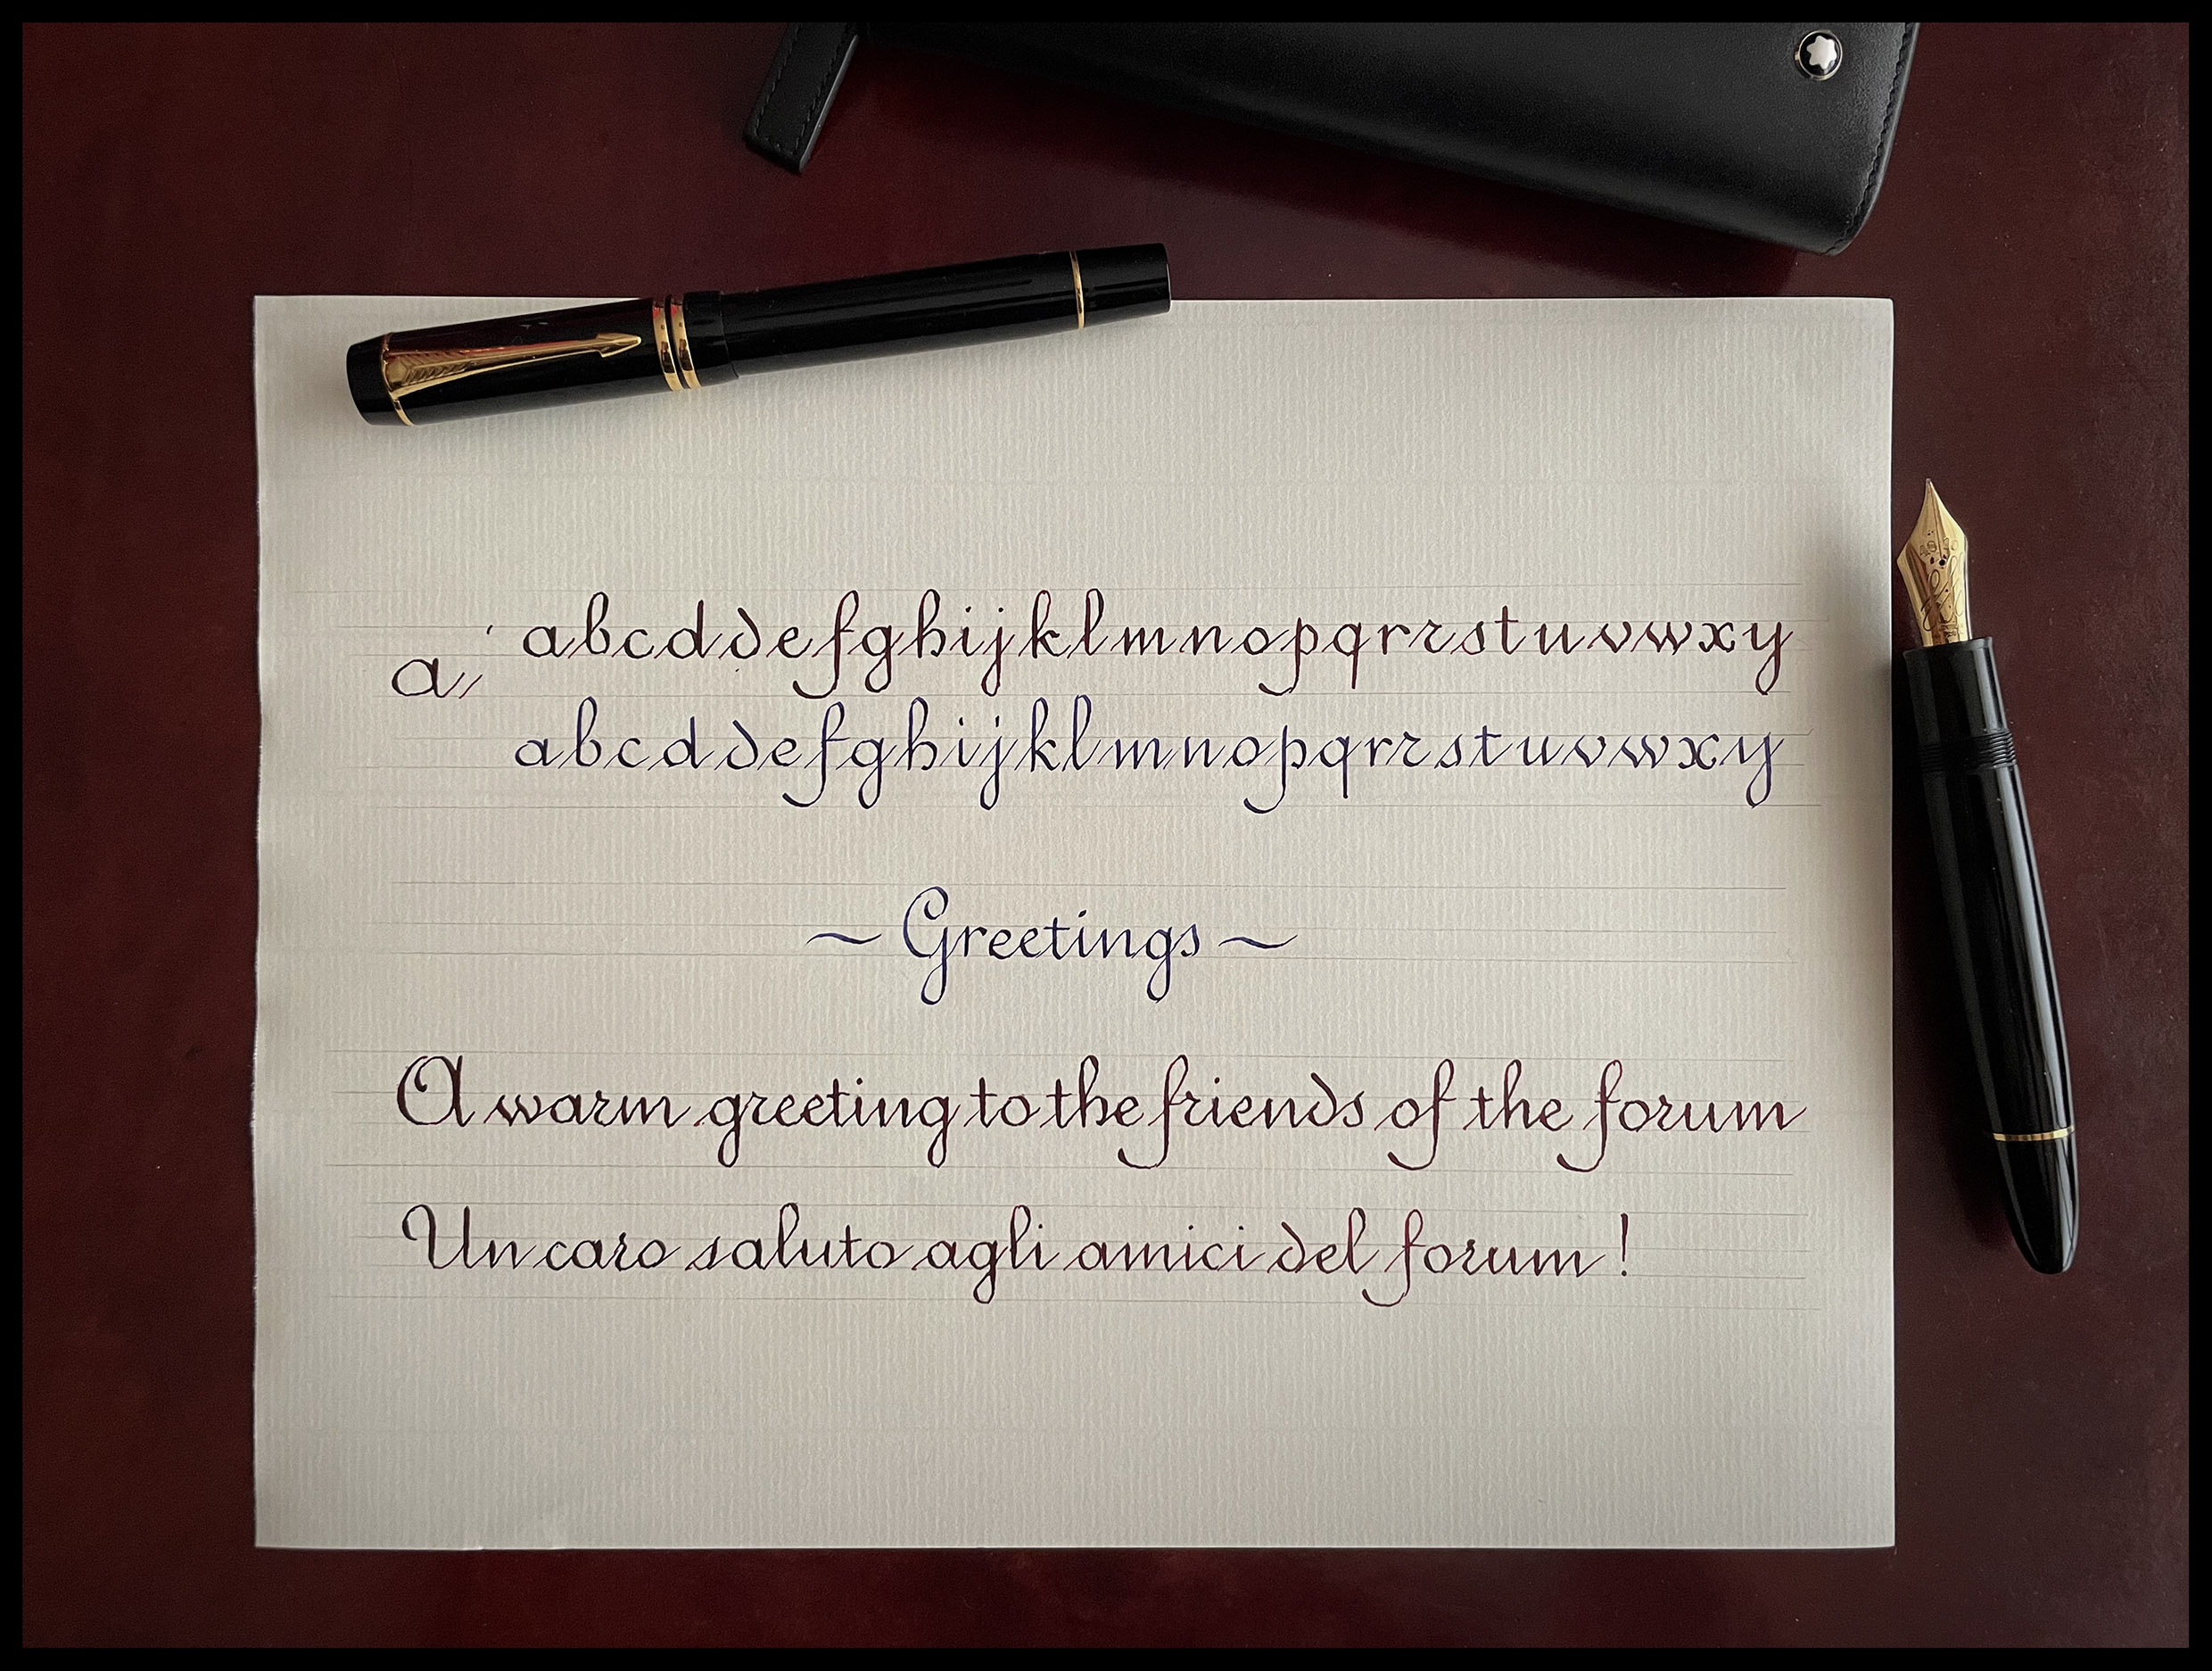 a, ' abcddefghijklmnopqrrstuvwxy
abcddefghijklmnopqrrstuvwxy
~ Greetings ~
A warm greeting to the friends of the forum
Un caro saluto agli amici del forum !